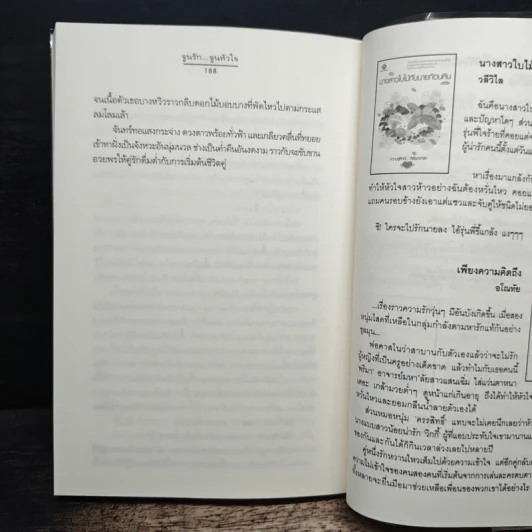 จูนรัก...จูนหัวใจ
188
จนเนื้อตัวเธอบางหวิวราวกลีบดอกไม้บอบบางที่พัดไหวไปตามกระแส
ลมโลมเล้า
จันทร์ทอแสงกระจ่าง ดวงดาวพร้อยทั่วฟ้า และเกลียวคลื่นที่ทยอย
เข้าหาฝั่งเป็นจังหวะอันนุ่มนวล ช่างเป็นค่ำคืนอันงดงาม ราวกับจะขับขาน
อวยพรให้คู่รักดื่มด่ำกับการเริ่มต้นชีวิตคู่
นางสาวใบไม้
วลีวิไล
ฉันคือนางสาวใบ
และปัญหาใดๆ ส่วน
รุ่นพี่ใจร้ายที่คอยแต่จ
ผู้น่ารักคนนี้ตั้งแต่วันแ
หาเรื่องมาแกล้งกัน
ทำให้หัวใจสาวห้าวอย่างฉันต้องหวั่นไหว คอยแ
แถมคนรอบข้างยังเอาแต่แซวและจับคู่ให้ชนิดไม่ยอ
ชิ! ใครจะไปรักนายลง ไอ้รุ่นพี่ขี้แกล้ง แงๆๆๆ
เพียงความคิดถึง
อโณทัย
...เรื่องราวความรักวุ่นๆ มีอันบังเกิดขึ้น เมื่อสอง
หนุ่มโสดที่เหลือในกลุ่มกำลังตามหารักแท้กันอย่าง
ชุลมุน...
พ่อคาสโนว่าสาบานกับตัวเองแล้วว่าจะไม่รัก
ผู้หญิงที่เป็นครูอย่างเด็ดขาด แล้วทำไมกับเธอคนนี้
อาจารย์มหา'ลัยสาวแสนเชย ใส่แว่นตาหนา
เตอะ เกล้ามวยต่ำๆ ดูหน้าแก่เกินอายุ ถึงได้ทำให้หัวใจ
หวั่นไหวและยอมกลืนน้ำลายตัวเองได้
ส่วนหมอหนุ่ม แทบจะไม่เคยนึกเลยว่าหัว
นางแบบสาวน้อยน่ารัก 'วิกกี้' ผู้ที่แอบประทับใจเขามานาน
ของกันและกันได้ก็กินเวลาล่วงเลยไปหลายปี
คู่หนึ่งรักหวานไหวเต็มไปด้วยความเข้าใจ แต่อีกคู่กลับเ
ความไม่เข้าใจของคนสองคนที่เริ่มต้นจากการเล่นละครตบตา
ทั้งหลายจะยื่นมือมาช่วยเหลือเพื่อนของพวกเขาได้อย่างไร